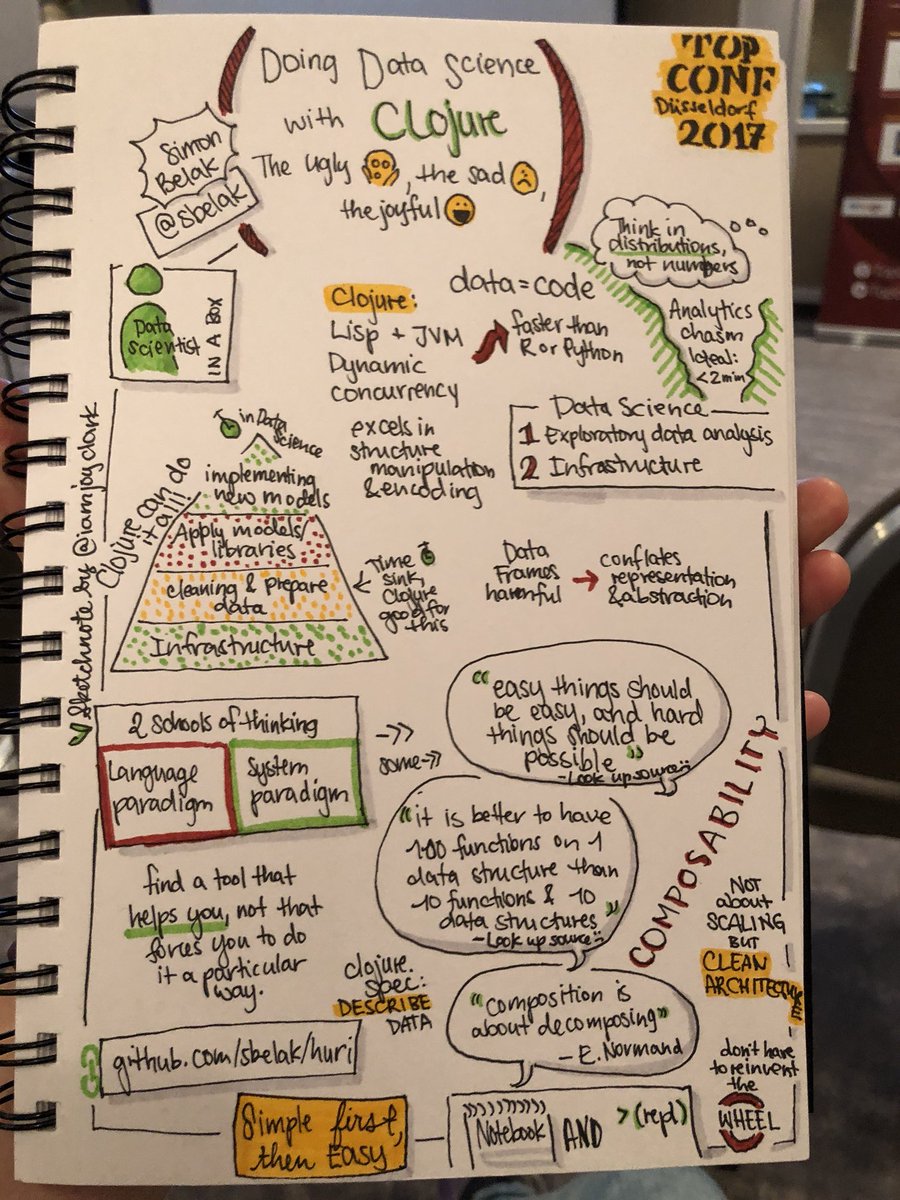 Doing Data Science
with Clojure
The Ugly, the sad,
the joyful
TOP
CONF
Düsseldorf
2017
Simon
Belak
@sbelak
Think in
distributions,
not numbers
Data
Scientist
IN A BOX
Clojure:
Lisp + JVM
Dynamic
concurrency
data=code
faster than
R or Python
Analytics
chasm
Ideal:
<2min
excels in
structure
manipulation
& encoding
Data Science
1 Exploratory data analysis
2 Infrastructure
Sketchnote by @iamjoyclark
Clojure can do
it all!
in Data
Science
implementing
new models
Apply models/
libraries
cleaning & prepare
data
Infrastructure
Time
sink,
Clojure
good for
this
Data
Frames
harmful
conflates
representation
& abstraction
2 schools of thinking
Language
paradigm
System
paradigm
->>
some->>
"easy things should
be easy, and hard
things should be
possible"
-Look up source
"it is better to have
100 functions on 1
data structure than
10 functions & 10
data structures"
-Look up source
COMPOSABILITY
find a tool that
helps you, not that
forces you to do
it a particular
way.
clojure.
spec:
DESCRIBE
DATA
"composition is
about decomposing"
- E. Normand
NOT
about
SCALING
BUT
CLEAN
ARCHITECTURE
github.com/sbelak/huri
don't have
to reinvent
the
WHEEL
Simple first,
then EASY
Notebook
AND
>(repl)